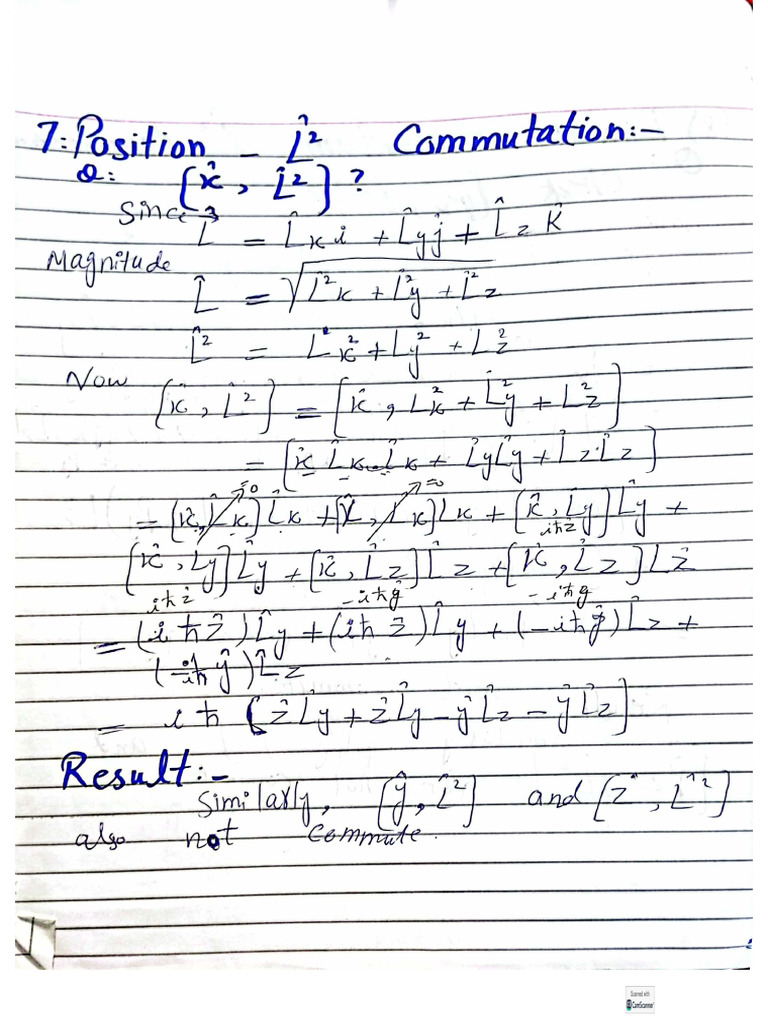 7: Position - L̂² Commutation:-
Q: [x̂, L̂²] ?
Since L̂ = L̂x i + L̂y j + L̂z k̂
Magnitude
L̂ = √(L̂²x + L̂²y + L̂²z)
L̂² = Lx² + Ly² + Lz²
Now [x̂, L̂²] = [x̂, Lx² + L̂y² + Lz²]
= [x̂, L̂x·L̂x + L̂yL̂y + L̂z·L̂z]
= [x̂, L̂x]→0 L̂x + [x̂, L̂x]→0 Lx + [x̂, L̂y] L̂y +
iħẑ
[x̂, Ly] L̂y + [x̂, L̂z] L̂z + [x̂, L̂z] Lz
iħẑ -iħŷ -iħŷ
= (iħẑ) L̂y + (iħẑ) L̂y + (-iħŷ) L̂z +
(-iħŷ) L̂z
= iħ [ẑL̂y + ẑL̂y - ŷL̂z - ŷL̂z]
Result:-
Similarly, [ŷ, L̂²] and [ẑ, L̂²]
also not commute.
Scanned with
CamScanner